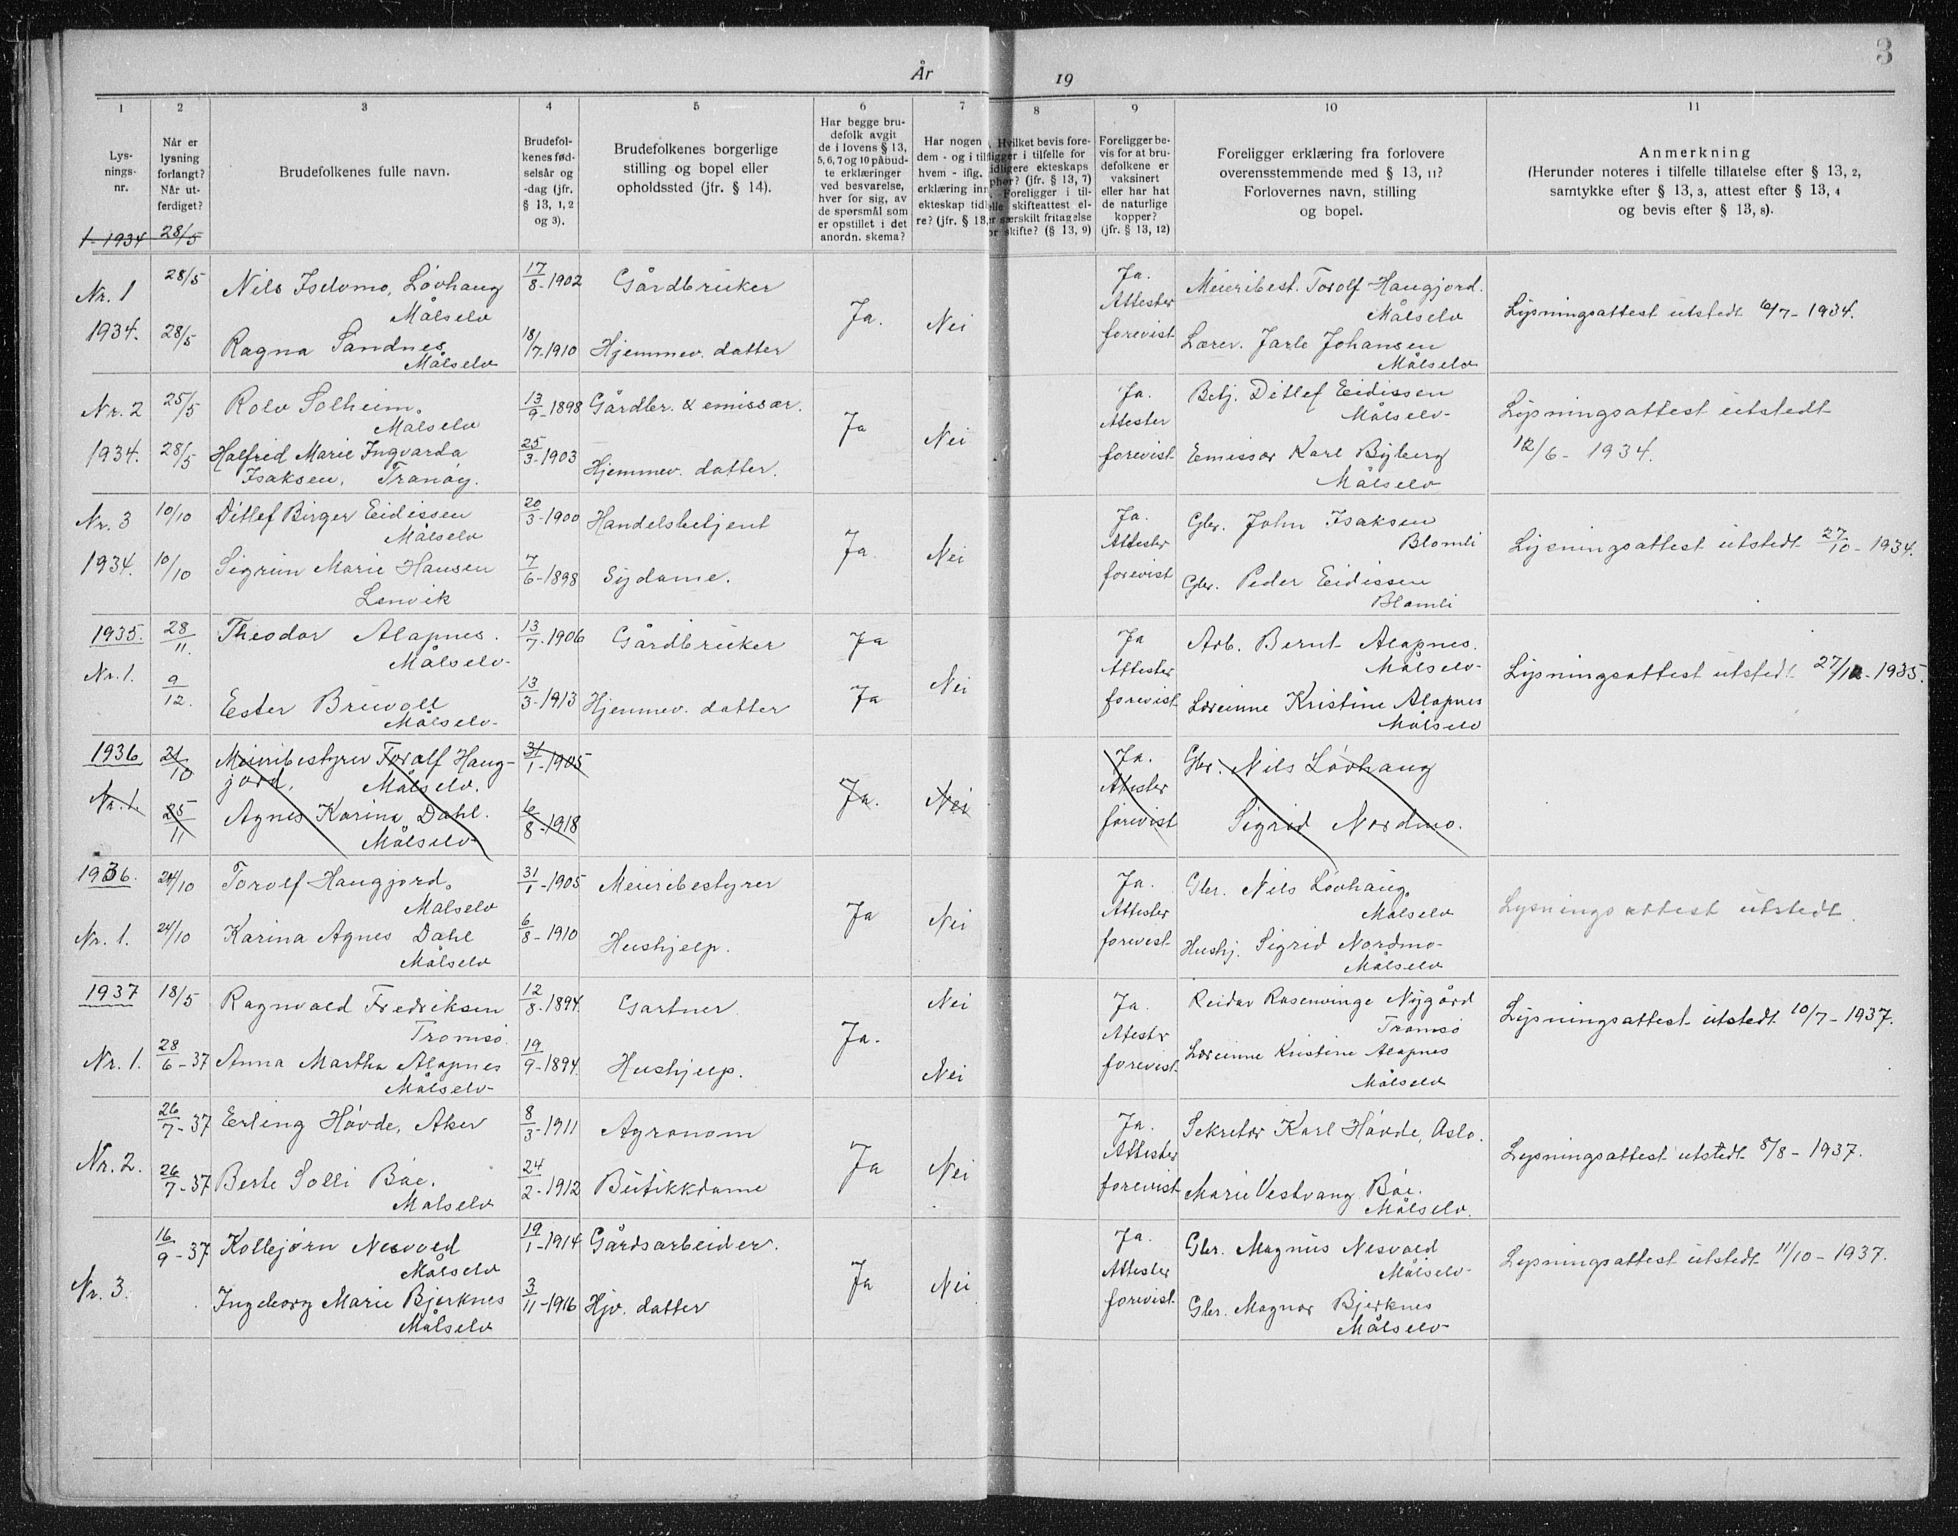 3
År 19
1 2 3 4 5 6 7 8 9 10 11
Lys-
nings-
nr.
Når er
lysning
forlangt?
Når ut-
ferdiget?
Brudefolkenes fulle navn.
Brudefol-
kenes fød-
selsår og
-dag (jfr.
§ 13, 1, 2
og 3).
Brudefolkenes borgerlige
stilling og bopel eller
opholdssted (jfr. § 14).
Har begge bru-
defolk avgit
de i lovens § 13,
5, 6, 7 og 10 påbud-
te erklæringer
ved besvarelse,
hver for sig, av
de spørsmål som
er opstillet i det
anordn. skema?
Har nogen
dem - og i tilf
hvem - iflg.
erklæring inn
ekteskap tidl
re? (jfr. § 13,
Hvilket bevis fore-
ligger i tilfelle for
idligere ekteskaps
phør? (jfr. § 13, 7)
Foreligger i til-
elle skifteattest el-
er særskilt fritagelse
or skifte? (§ 13, 9)
Foreligger be-
vis for at bru-
defolkene er
vaksinert
eller har hat
de naturlige
kopper?
(jfr. § 13, 12)
Foreligger erklæring fra forlovere
overensstemmende med § 13, 11?
Forlovernes navn, stilling
og bopel.
Anmerkning
(Herunder noteres i tilfelle tillatelse efter § 13, 2,
samtykke efter § 13, 3, attest efter § 13, 4
og bevis efter § 13, 8).
1-1934 28/5
Nr. 1 28/5 Nils Iselvmo, Løvhaug 17/8-1902 Gårdbruker Ja. Meieribest. Torolf Haugjord.
Målselv Ja. Nei Attester Målselv Lysningsattest utstedt 6/7-1934.
1934. 28/5 Ragna Sandnes 18/7-1910 Hjemmev. datter forevist Lærer. Jarle Johansen
Målselv Målselv
Nr. 2 25/5 Rolv Solheim. 13/9-1898 Gårdbr. & emissær. Ja. Betj. Ditlef Eidissen
Målselv Ja Nei Attester Målselv Lysningsattest utstedt
1934. 28/5 Halfrid Marie Ingvarda 25/3-1903 Hjemmev. datter. forevist Emissær Karl Byberg 12/6 - 1934.
Isaksen, Tranøy. Målselv
Nr. 3 10/10 Ditlef Birger Eidissen 20/3-1900 Handelsbetjent Ja. Gbr. John Isaksen
Målselv Ja. Nei Attester Blomli Lysningsattest utstedt 27/10-1934.
1934. 10/10 Sigrun Marie Hansen 7/6-1898 Sydame. forevist Gbr. Peder Eidissen
Lenvik Blomli
1935. 28/11. Theodor Alapnes. 13/7-1906 Gårdbruker Ja Ja Arb. Bernt Alapnes.
Målselv Attester Målselv Lysningsattest utstedt 27/12-1935.
Nr. 1. 9/12. Ester Bruvoll 13/3-1913 Hjemmev. datter Ja Nei forevist Lærerinne Kristine Alapnes
Målselv Målselv
1936 21/10 Meieribestyrer Torolf Haug- 31/1-1905 Ja. Gbr. Nils Løvhaug
jord, Målselv. Attester
Nr. 1. 25/11 Agnes Karina Dahl. 6/8-1918 Ja. Nei forevist Sigrid Nordmo.
Målselv
1936. 24/10 Torolf Haugjord. 31/1-1905 Meieribestyrer Ja. Gbr. Nils Løvhaug.
Målselv Ja Nei Attester Målselv Lysningsattest utstedt.
Nr. 1. 24/10 Karina Agnes Dahl 6/8-1910 Hushjelp. forevist Hushj. Sigrid Nordmo
Målselv Målselv
1937 18/5 Ragnvald Fredriksen 12/8-1894. Gartner Nei Ja Reidar Rosenvinge Nygård
Tromsø. Ja. Attester Tromsø Lysningsattest utstedt 10/7-1937.
Nr. 1. 28/6-37 Anna Martha Alapnes 19/9-1894. Hushjelp. Nei forevist Lærerinne Kristine Alapnes
Målselv Målselv
26/7-37 Erling Høvde, Aker 8/3-1911 Agronom Ja. Sekretær Karl Høvde, Oslo.
Nr. 2. Ja Nei Attester Lysningsattest utstedt 8/8-1937.
26/7-37 Berte Solli Bøe. 24/2-1912 Butikkdame forevist Marie Vestvang Bøe.
Målselv Målselv.
16/9-37 Kolbjørn Nesvold 19/1-1914 Gårdsarbeider. Ja. Gbr. Magnus Nesvold
Målselv Attester Målselv Lysningsattest utstedt 11/10-1937.
Nr. 3. Ingeborg Marie Bjerknes 3/11-1916 Hjv. datter Ja Nei forevist Gbr. Magnor Bjerknes
Målselv Målselv